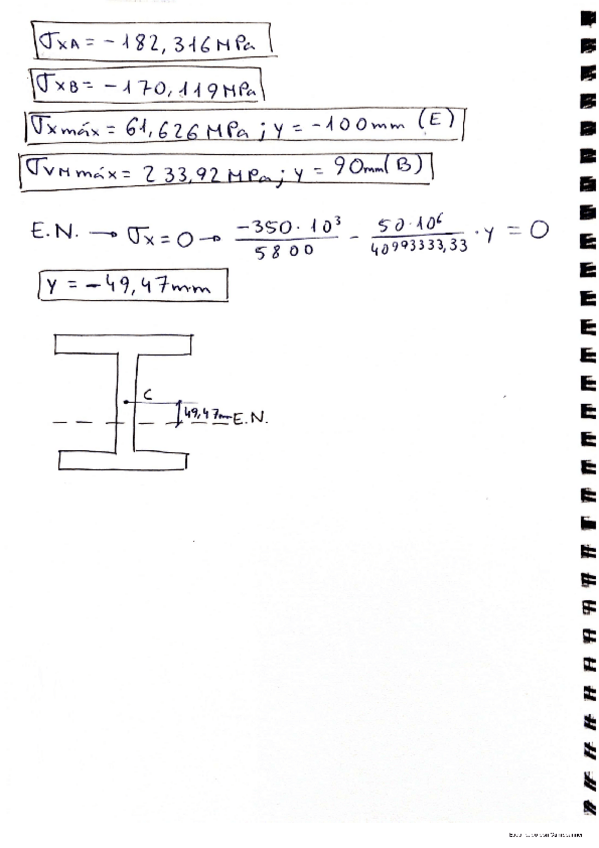 σxA = -182,316 MPa
σxB = -170,119 MPa
σxmáx = 61,626 MPa ; y = -100mm (E)
σVMmáx = 233,92 MPa ; y = 90mm (B)
E.N. → σx = 0 → -350·10³/5800 - 50·10⁶/40993333,33 · y = 0
y = -49,47mm
C
49,47mm E.N.